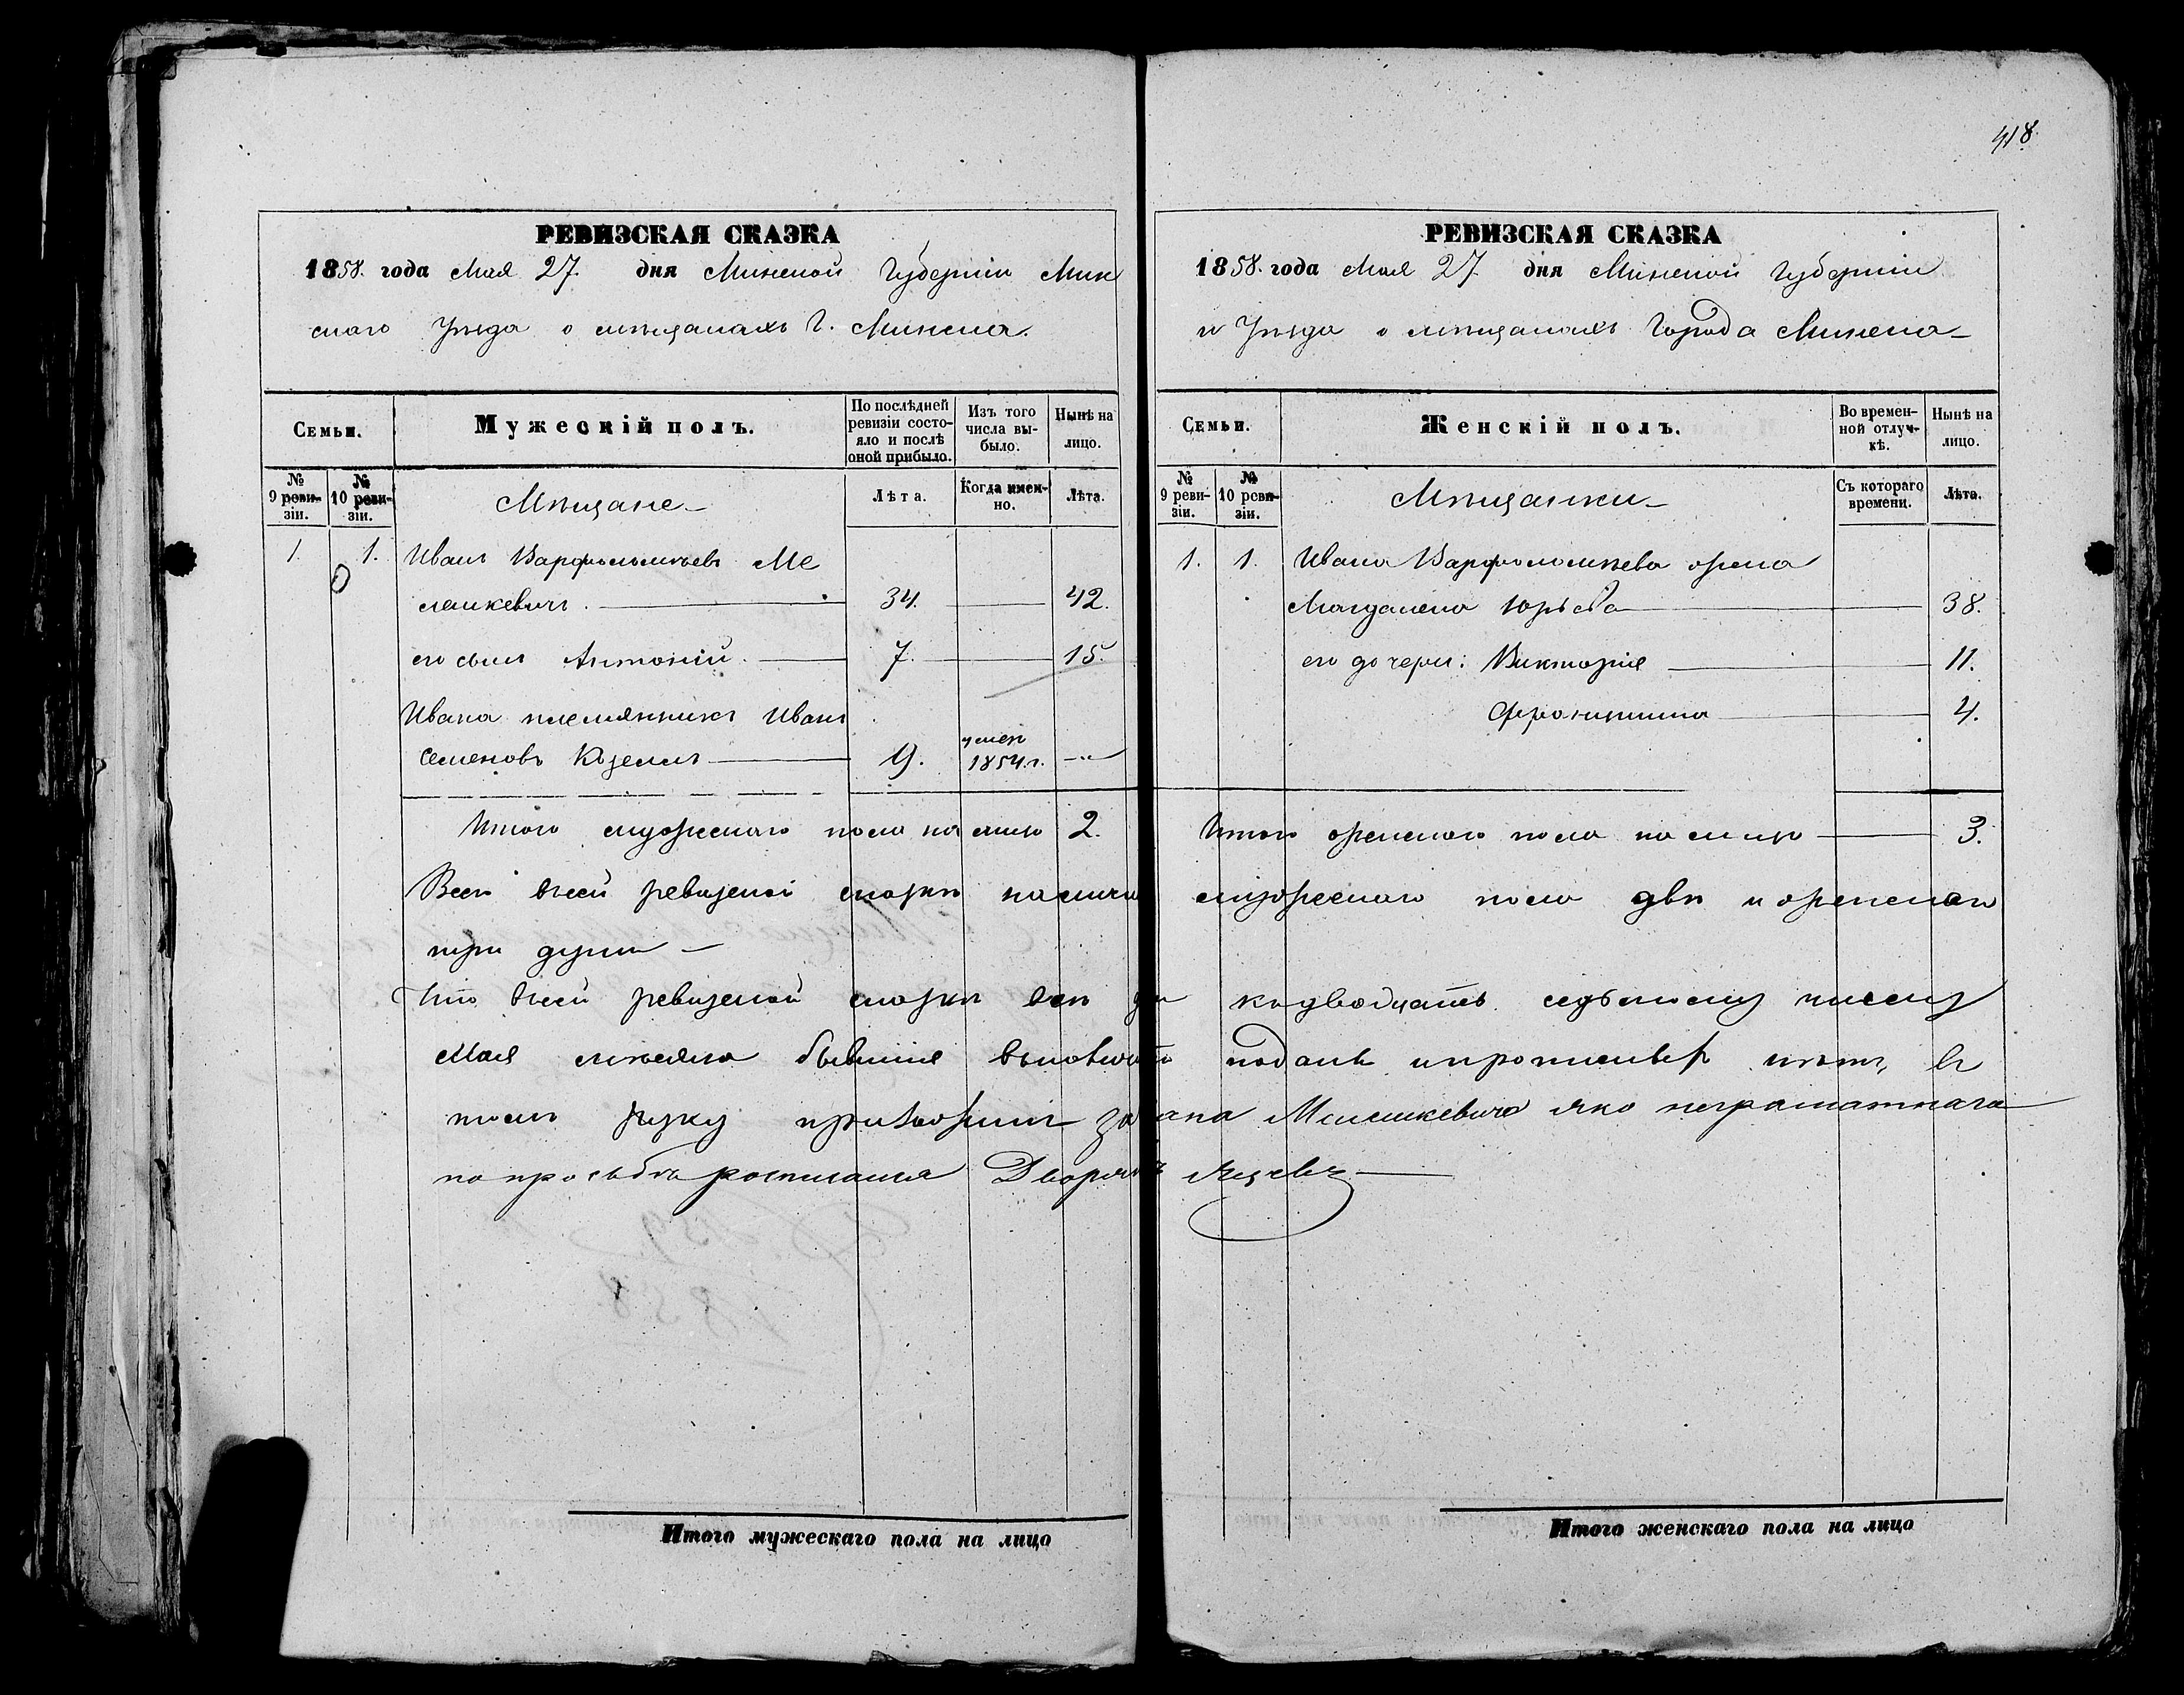 418.
РЕВИЗСКАЯ СКАЗКА
1858. года Мая 27. дня Минской Губерніи Мин
скаго Уѣзда о мѣщанахъ Г. Минска.
Семьи.
Мужескій полъ.
По послѣдней ревизіи состояло и послѣ оной прибыло.
Изъ того числа выбыло.
Нынѣ на лицо.
№ 9 ревизіи.
№ 10 ревизіи.
Мѣщане
Лѣта.
Когда именно.
Лѣта.
1. 1. Иванъ Варфоломѣевъ Ме
лешкевичъ. 34. 42.
его сынъ Антоній. 7. 15.
Ивана племянникъ Иванъ
Семеновъ 9. умеръ 1854.г. „
Итого мужескаго пола на лицо 2.
РЕВИЗСКАЯ СКАЗКА
1858. года Мая 27. дня Минской Губерніи
и Уѣзда о мѣщанахъ Города Минска
Семьи.
Женскій полъ.
Во временной отлучкѣ.
Нынѣ на лицо.
№ 9 ревизіи.
№ 10 ревизіи.
Мѣщанки
Съ котораго времени.
Лѣта.
1. 1. Ивана Варфоломѣева жена
Магдалена Юрьева 38.
его дочери: Викторія 11.
4.
Итого женскаго пола на лицо 3.
Всего въ сей ревизской сказкѣ на лицо мужескаго пола двѣ и женскаго
три души
Что въ сей ревизской сказкѣ всѣ къ двадцать седьмому числу
Мая мѣсяца бывшіе показаны и прописныхъ нѣтъ, въ
томъ руку приложилъ за Мелешкевича яко неграматнаго
по прозьбѣ росписался Дворянинъ
Итого мужескаго пола на лицо
Итого женскаго пола на лицо